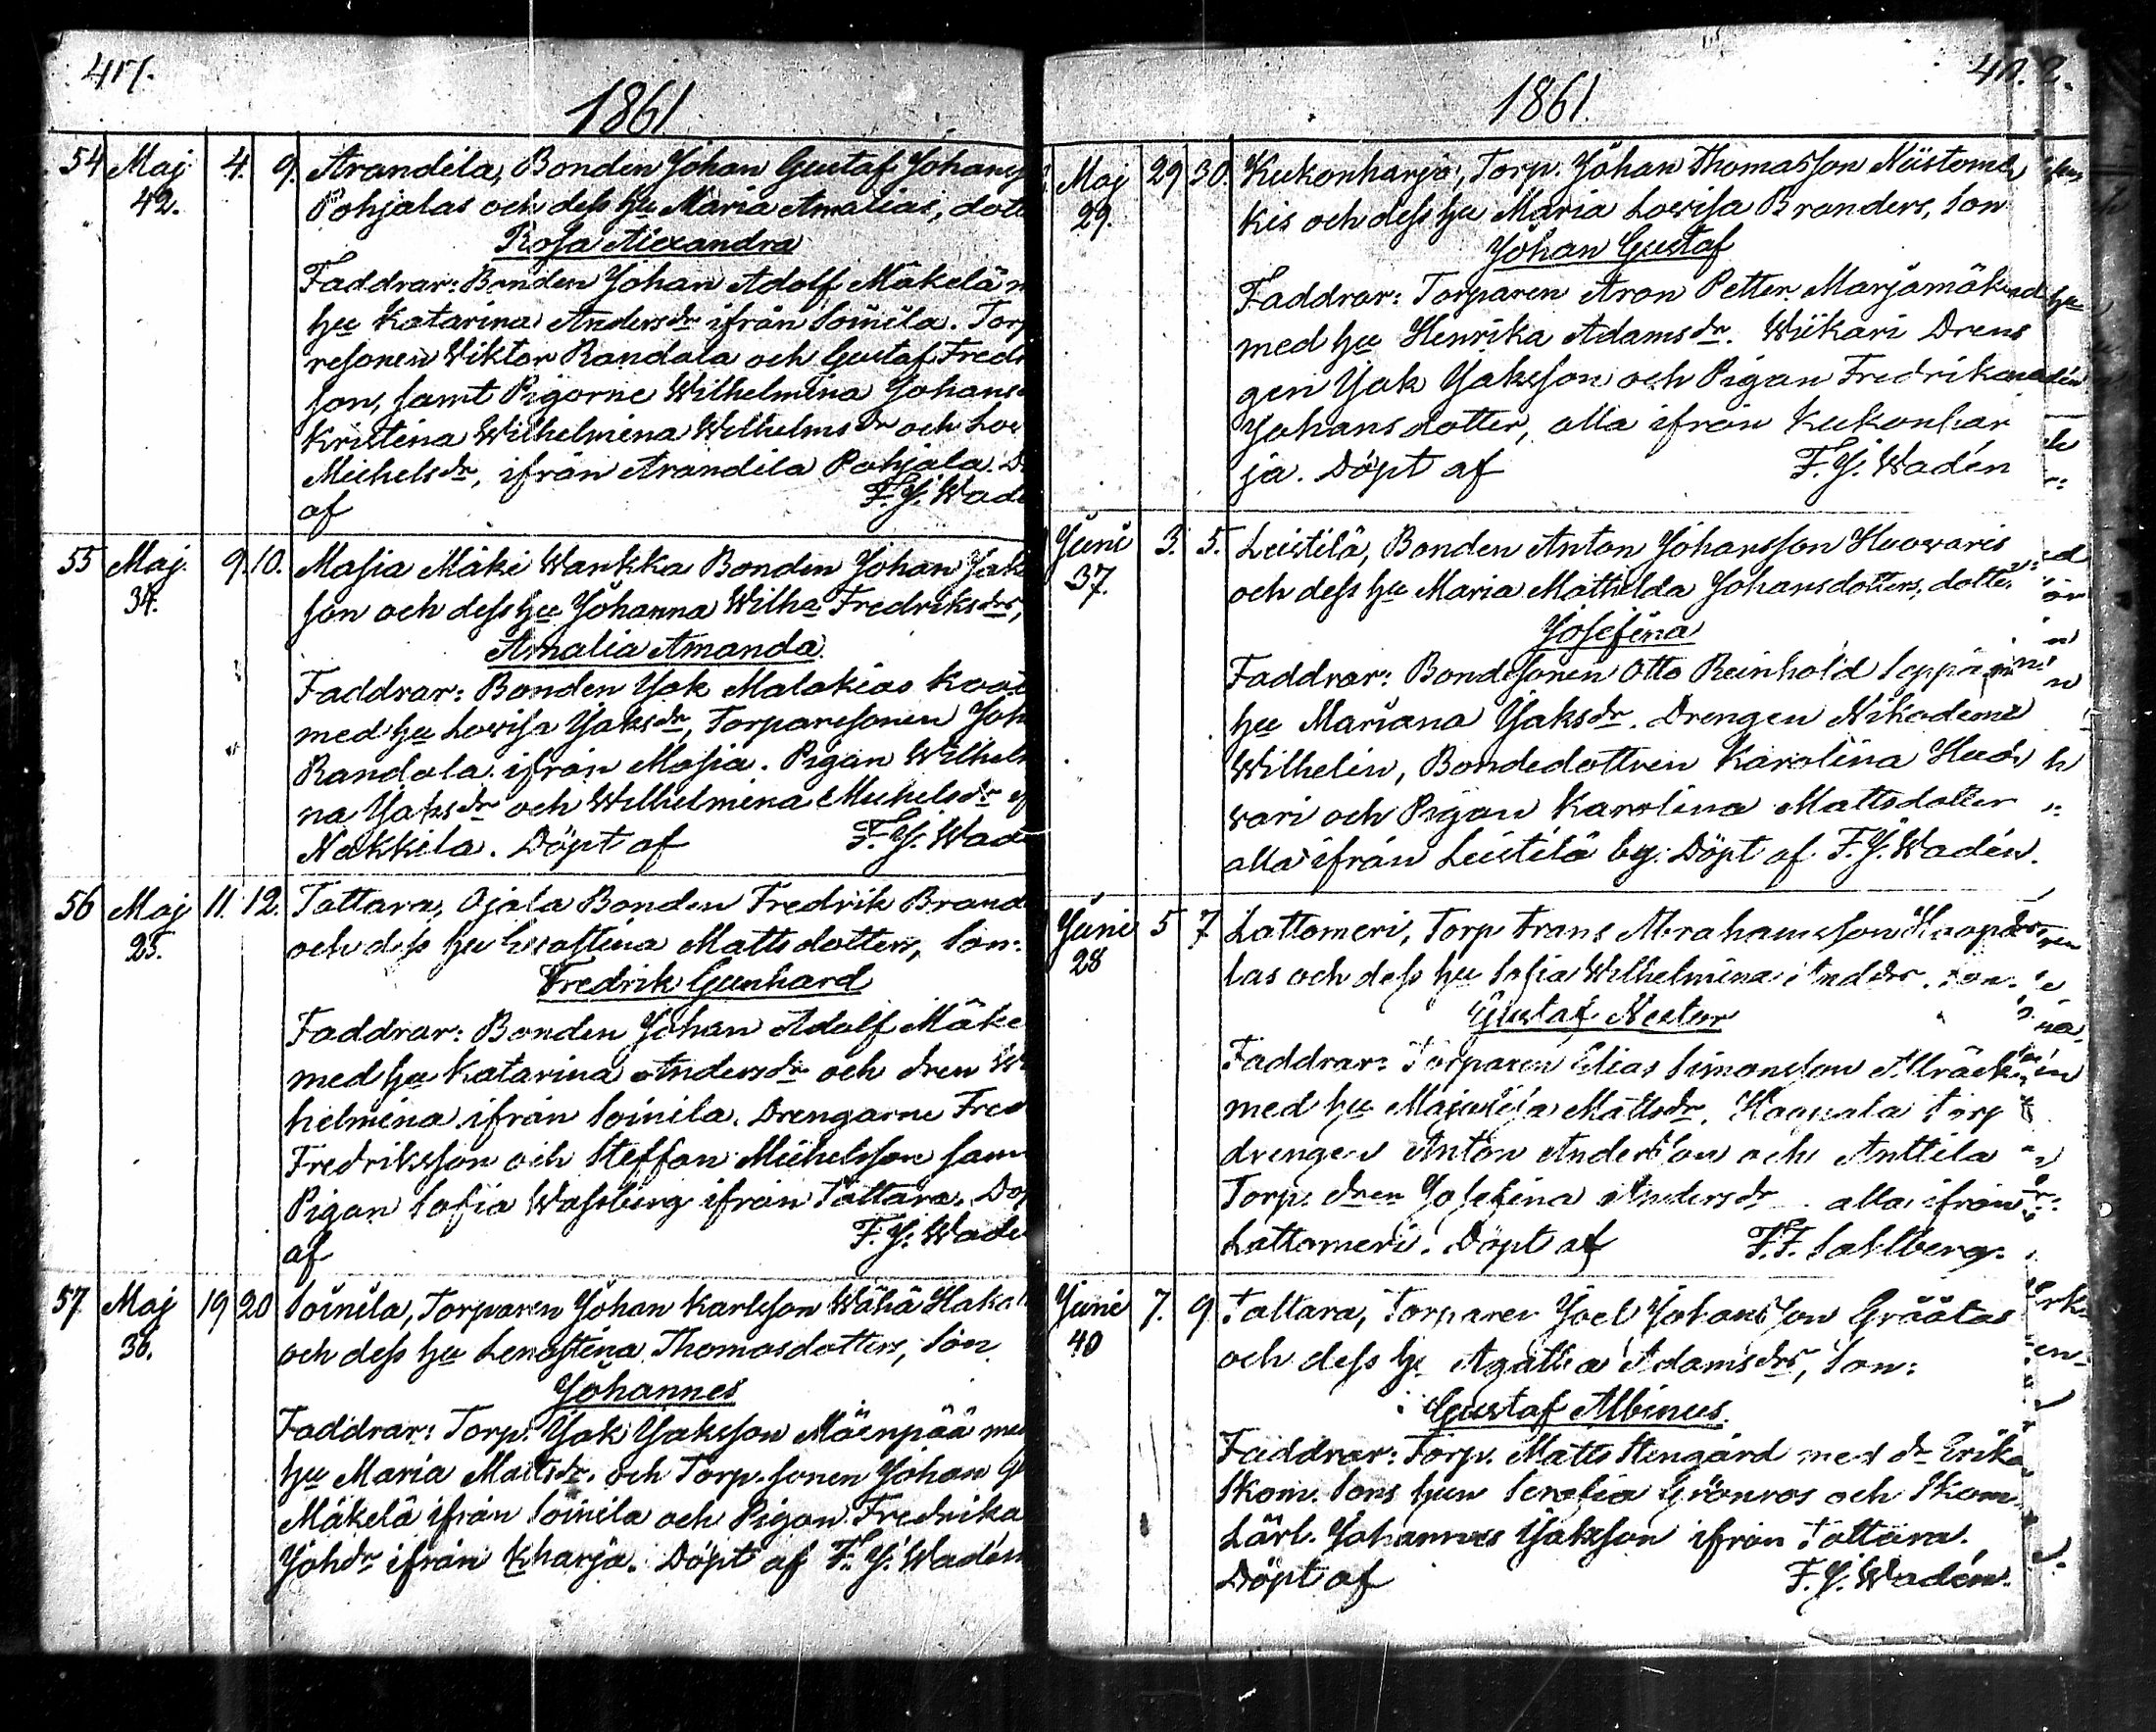 417.
1861
54 Maj 4. 9. Arandila, Bonden Johan Gustaf Johans
42. Pohjalas och dess hu Maria Amalias, dott
Rosa Alexandra
Faddrar: Bonden Johan Adolf Mäkelä m
hu Katarina Andersdr ifrån Soinila. Torp
resonen Wiktor Randala och Gustaf Fredr
son, samt Pigorne Wilhelmina Johans
Kristina Wilhelmina Wilhelmsdr och Lov
Michelsdr, ifrån Arandila Pohjala. D
af F. J. Wade
55 Maj 9. 10. Masia Mäki Wankka Bonden Johan Jak
34. son och dess hu Johanna Wilha Fredriksdrs,
Amalia Amanda.
Faddrar: Bonden Jak Malakias
med hu Lovisa Jaksdr, Torparesonen Joh
Randala ifrån Masia. Pigan Wilhelm
na Jaksdr och Wilhelmina Michelsdr if
Nakkila. Döpt af F. J. Wad
56 Maj 11. 12. Tattara, Ojala Bonden Fredrik Brand
25. och dess hu Mattsdotters, Son:
Fredrik Gunhard
Faddrar: Bonden Johan Adolf Mäke
med hu Katarina Andersdr och dren Wi
helmina ifrån Soinila. Drengarne Fred
Fredriksson och Steffan Michelsson sam
Pigan Sofia Wassberg ifrån Tattara. Döp
af F. J. Wade
57 Maj 19 20 Soinila, Torparen Johan Karlsson Wähä Haka
36. och dess hu Lenastina Thomasdotters, Son
Johannes
Faddrar: Torp. Jak Jaksson Mäenpää med
hu Maria Mattsdr. och Torp. sonen Johan G
Mäkelä ifrån Soinila och Pigan Fredrika
Johdr ifrån Kharja. Döpt af F. J. Wadén
1861.
Maj 29 30. Kukonharja, Torp. Johan Thomasson Niistomä
29. kis och dess hu Maria Lovisa Branders, Son
Johan Gustaf
Faddrar: Torparen Aron Petter Marjamäki
med hu Henrika Adamsdr. Wiikari Dren
gen Jak Jaksson och Pigan Fredrika
Johansdotter, alla ifrån Kukonhar
ja. Döpt af F. J. Wadén
Juni 3. 5. Leistilä, Bonden Anton Johansson Huovaris
37. och dess hu Maria Mathilda Johansdotters, dotter
Josefina
Faddrar: Bondesonen Otto Reinhold
hu Mariana Jaksdr. Drengen Nikodemus
Wilhelm, Bondedottren Karolina Huo
vari och Pigan Karolina Mattsdotter
alla ifrån Leistilä by. Döpt af F. J. Wadén.
Juni 5 7 Lattomeri, Torp Frans Abrahamsson Haapa
28 las och dess hu Sofia Wilhelmina Anddrs. son.
Gustaf Nestor
Faddrar: Torparen Elias Simonsson
med hu Majalisa Mattsdr. Haapala Torp
drengen Anton Andersson och Anttila
Torp. dren Josefina Andersdr alla ifrån
Lattomeri. Döpt af F. F. Sahlberg.
Juni 7. 9 Tattara, Torparen Joel Johansson Gräätas
40 och dess hu Agatha Adamsdrs, Son:
Gustaf Albinus.
Faddrar: Torp. Matts Stengård med dr Erika
Skom. Sons hun Serafia Grönros och Skom
Lärl. Johannes Jaksson ifrån Tattara.
Döpt af F. J. Wadén.